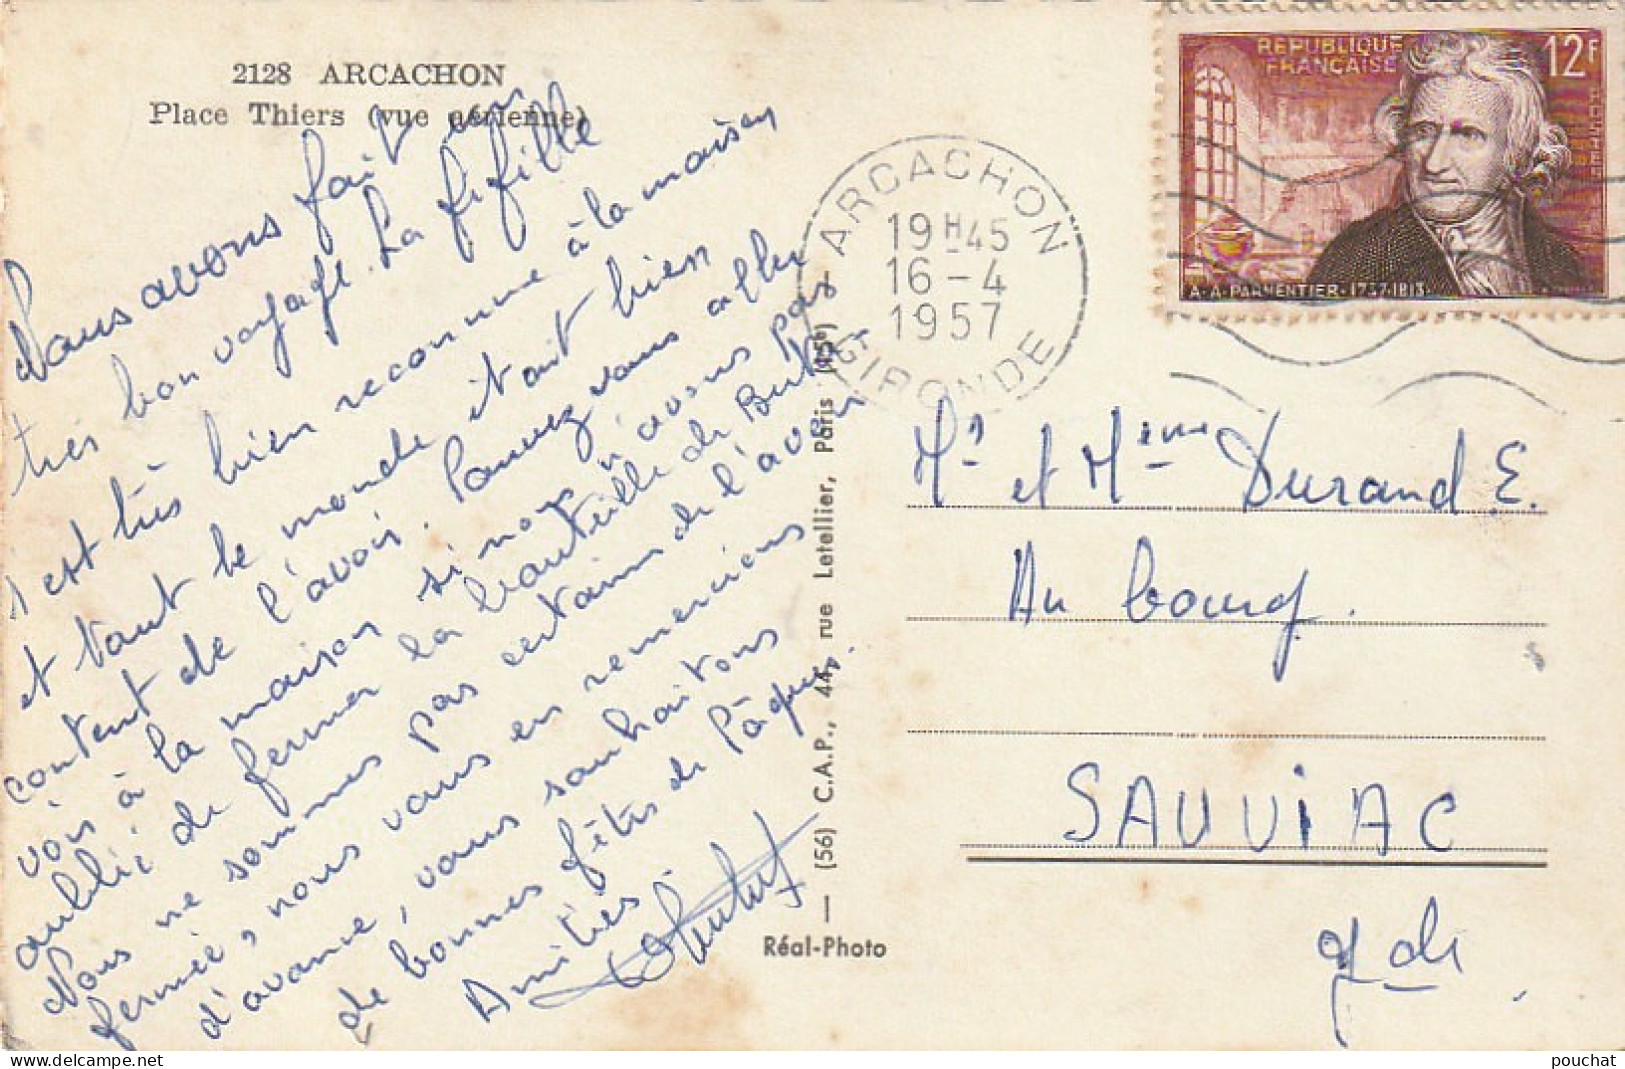 2128 ARCACHON
Place Thiers (vue aérienne)
Nous avons fait un
très bon voyage. La fifille
s'est très bien reconnue à la maison
et tout le monde était bien
content de l'avoir. Pouvez vous aller
voir à la maison si nous n'avons pas
oublié de fermer la bouteille de Buta
Nous ne sommes pas certains de l'avoir
fermée, nous vous en remercions
d'avance, vous souhaitons
de bonnes fêtes de Pâques.
Amitiés.
(56) C.A.P., 44, rue Letellier, Paris (15e)
Réal-Photo
ARCACHON
19H45
16-4
1957
GIRONDE
REPUBLIQUE
FRANÇAISE
12F
POSTES
A.A.PARMENTIER.1737.1813.
Mr et Mme Durand E.
Au bourg.
SAUVIAC
Gde
pouchat